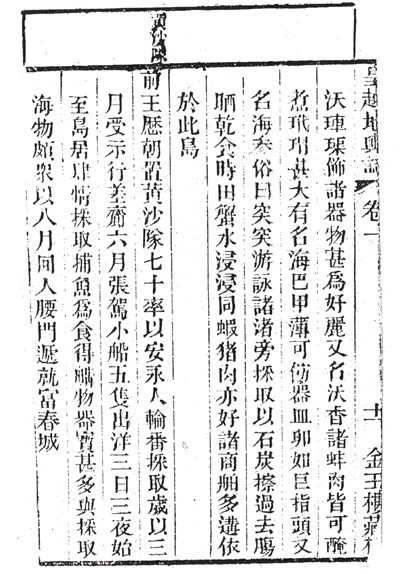 皇越地輿誌 卷一 十一 金玉樓藏板
沃硨磲飾諸器物甚爲好麗又名沃香諸蚌肉皆可醃
煮玳瑁甚大有名海巴甲薄可飭器皿卵如巨指頭又
名海參俗曰突突游詠諸渚旁採取以石炭擦過去膓
晒乾食時田蟹水浸浸同蝦猪肉亦好諸商舶多遘依
於此島
黃沙隊
前王歷朝置黃沙隊七十率以安永人輪番採取歲以三
月受示行差齎六月張駕小船五隻出洋三日三夜始
至島居肆情採取捕魚爲食得艚物器寶甚多與採取
海物頗衆以八月回人腰門遞就富春城